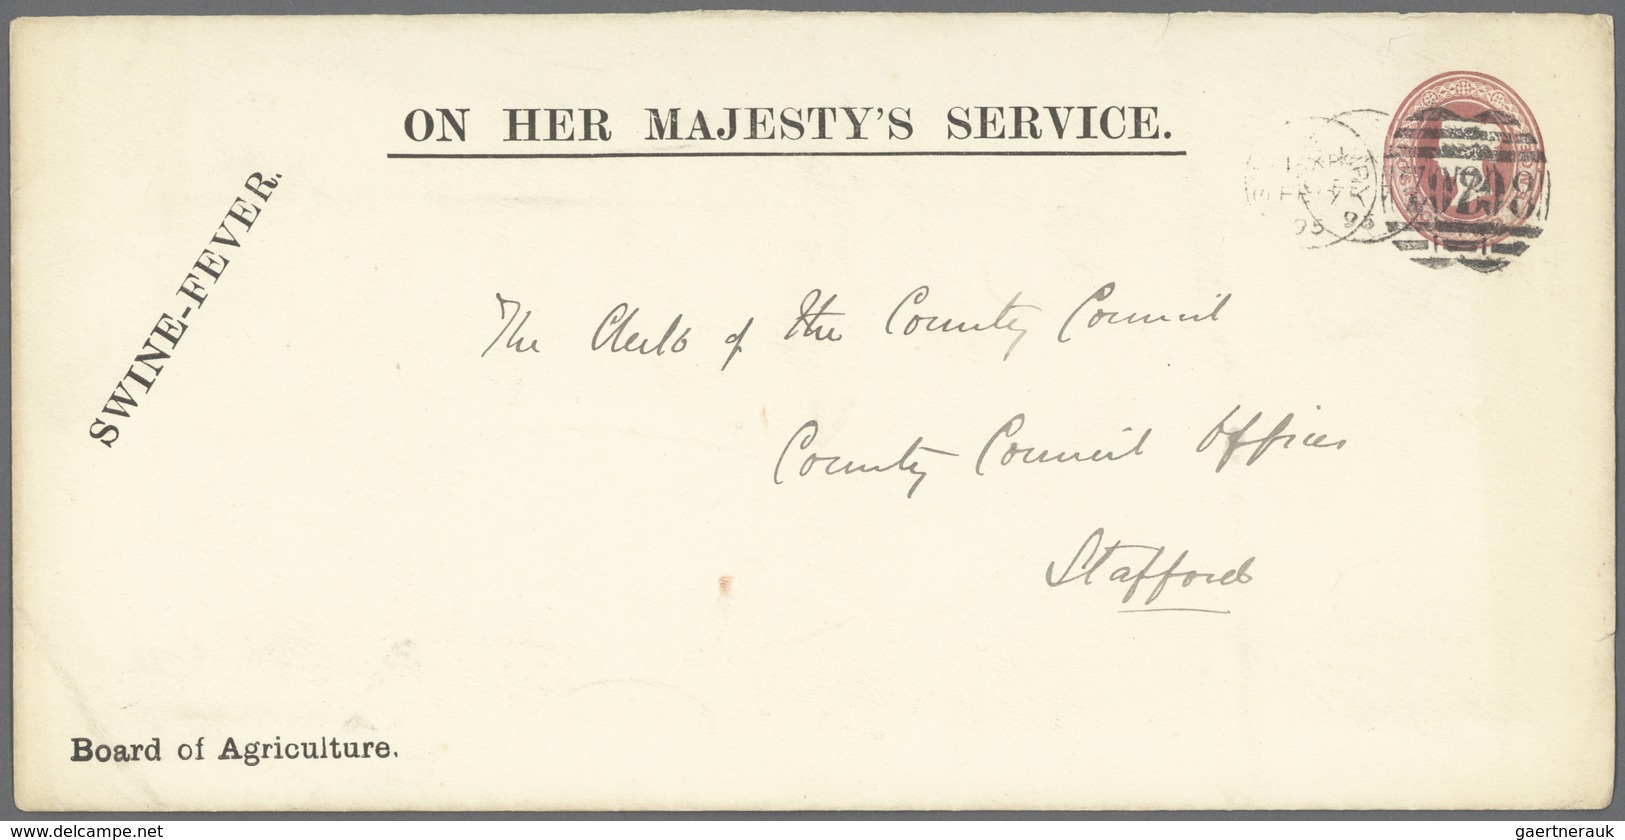 ON HER MAJESTY'S SERVICE.
SWINE-FEVER.
95 95
The Clerk of the County Council
County Council Offices
Stafford
Board of Agriculture.
www.delcampe.net
gaertnerauk